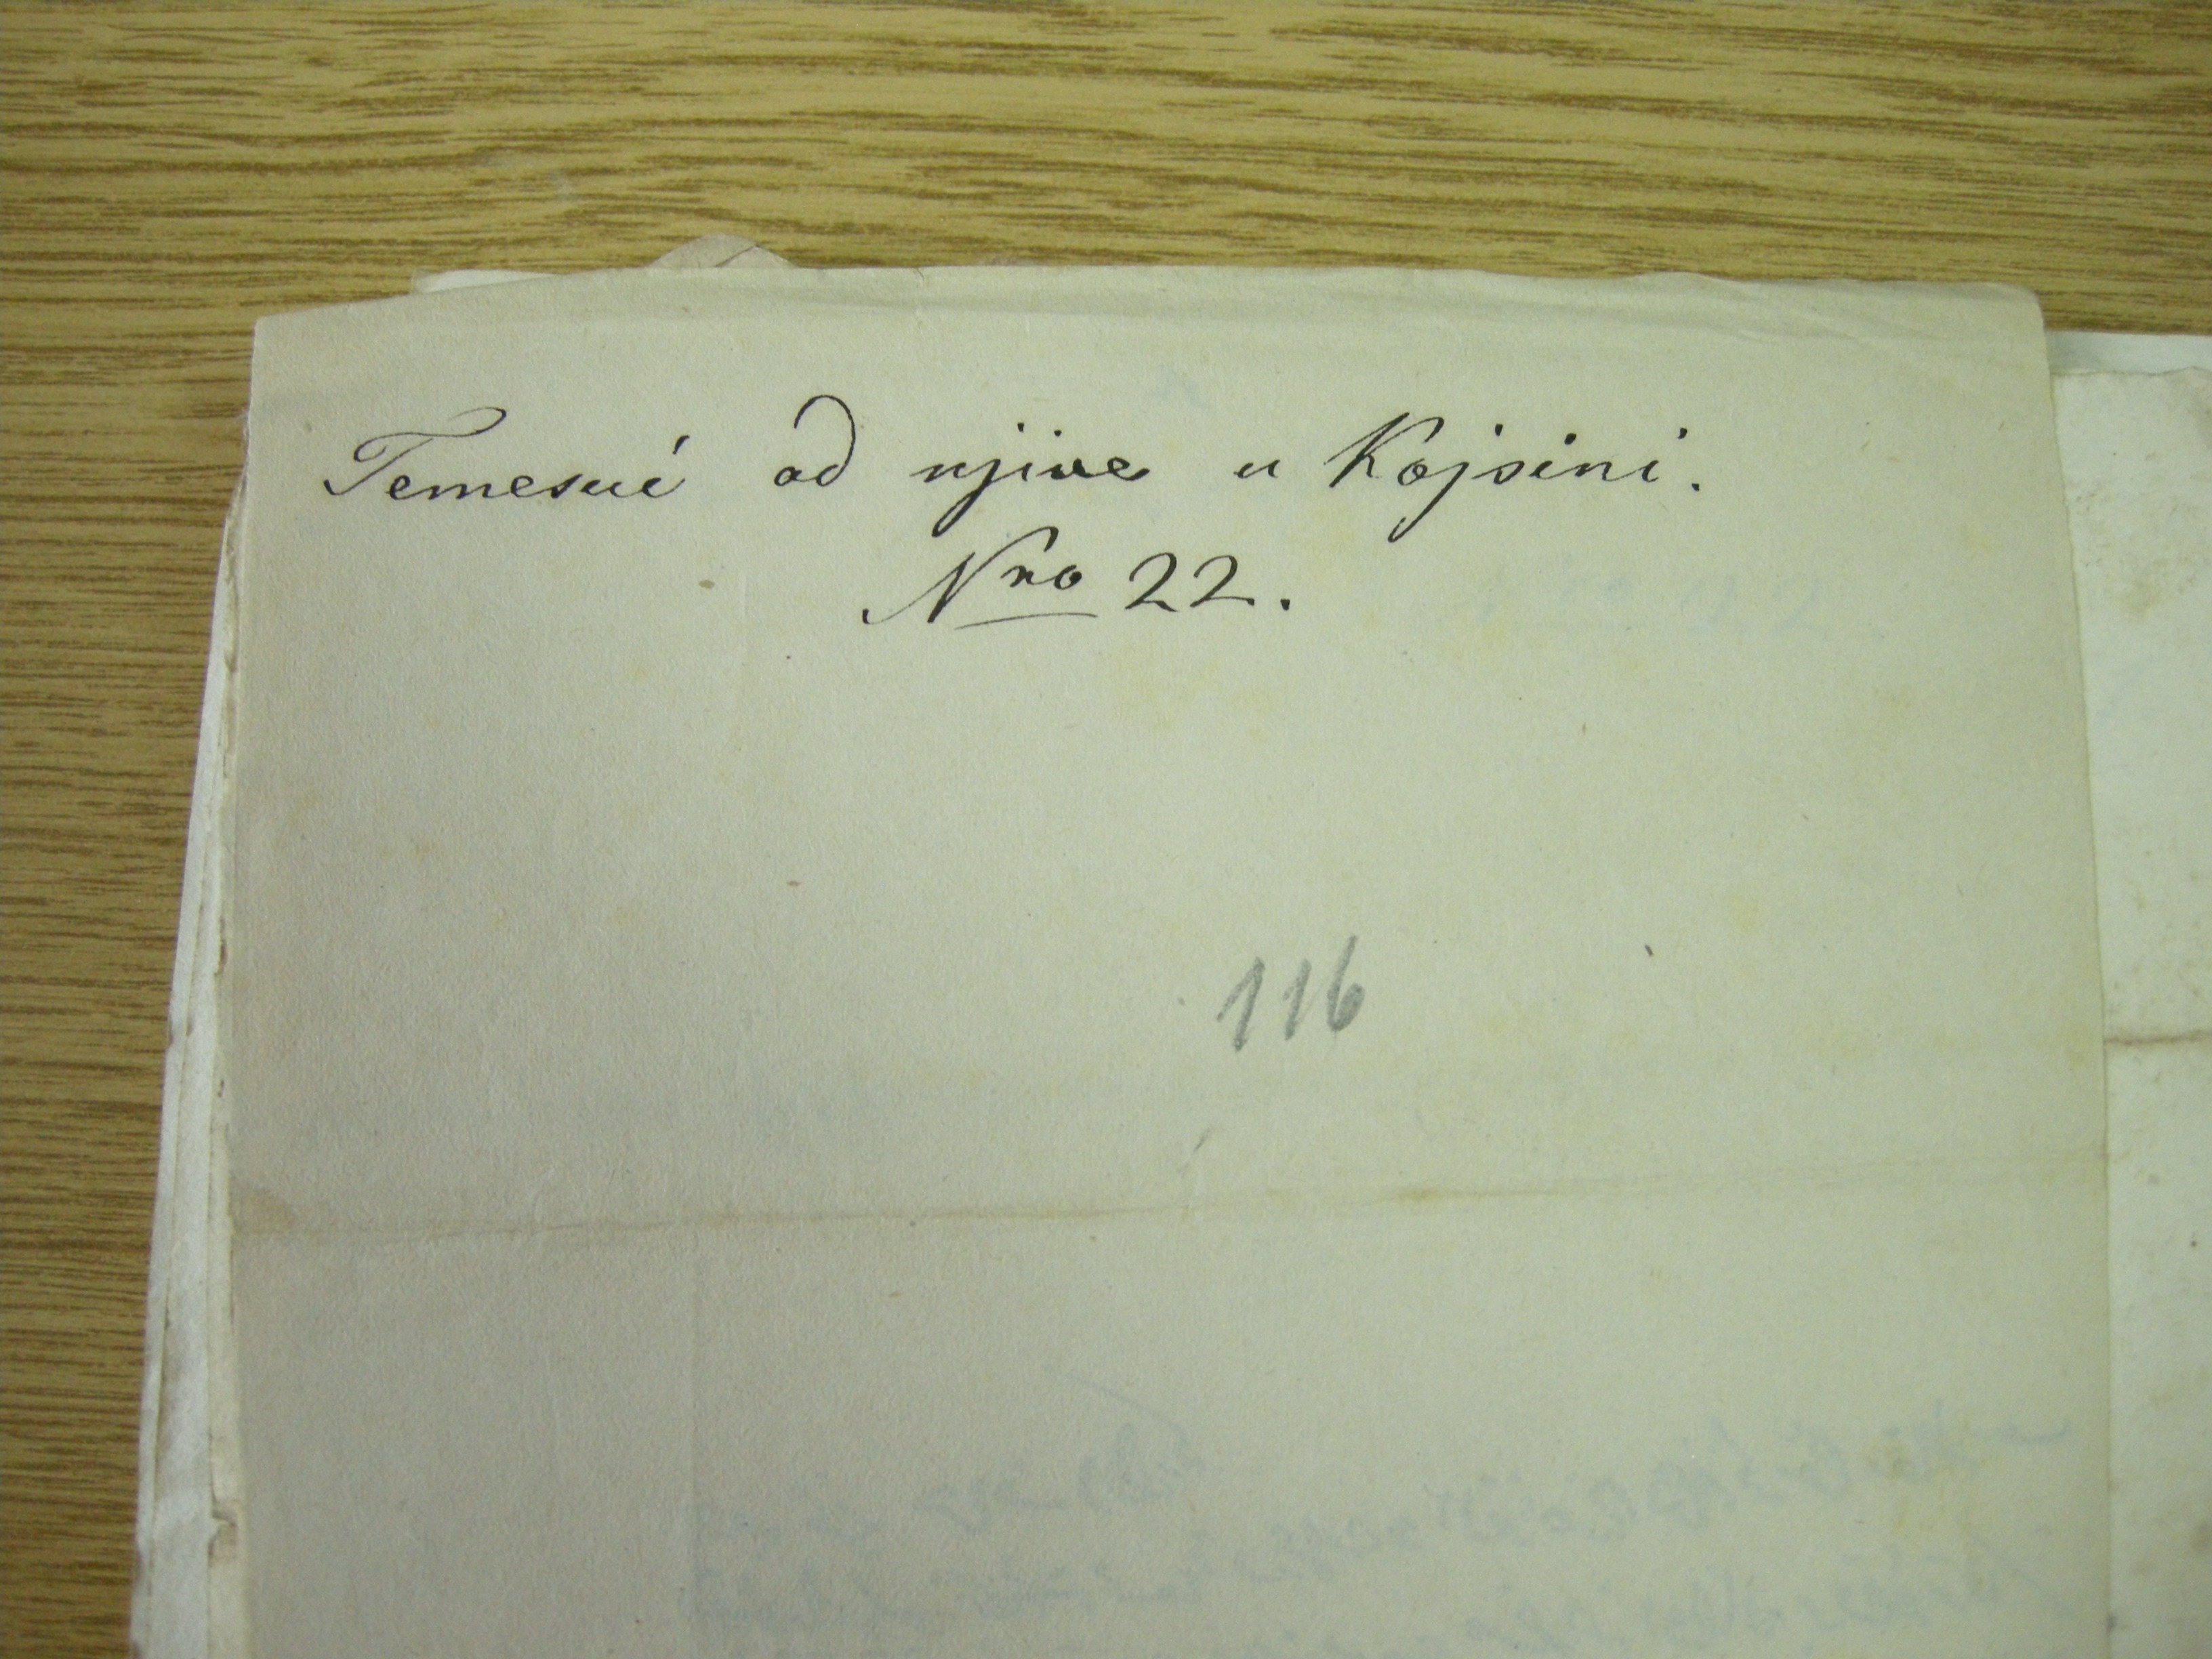 Temesuć od njive u Kojsini.
Nro 22.
116